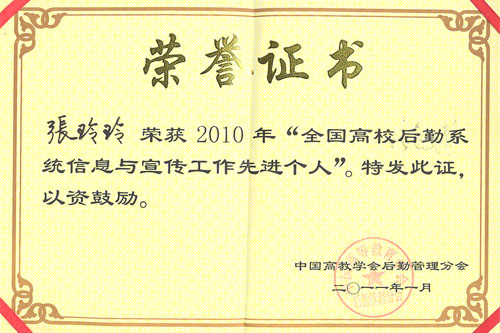 荣誉证书
張玲玲 荣获 2010 年“全国高校后勤系
统信息与宣传工作先进个人”。特发此证，
以资鼓励。
中国高教学会后勤管理分会
二〇一一年一月